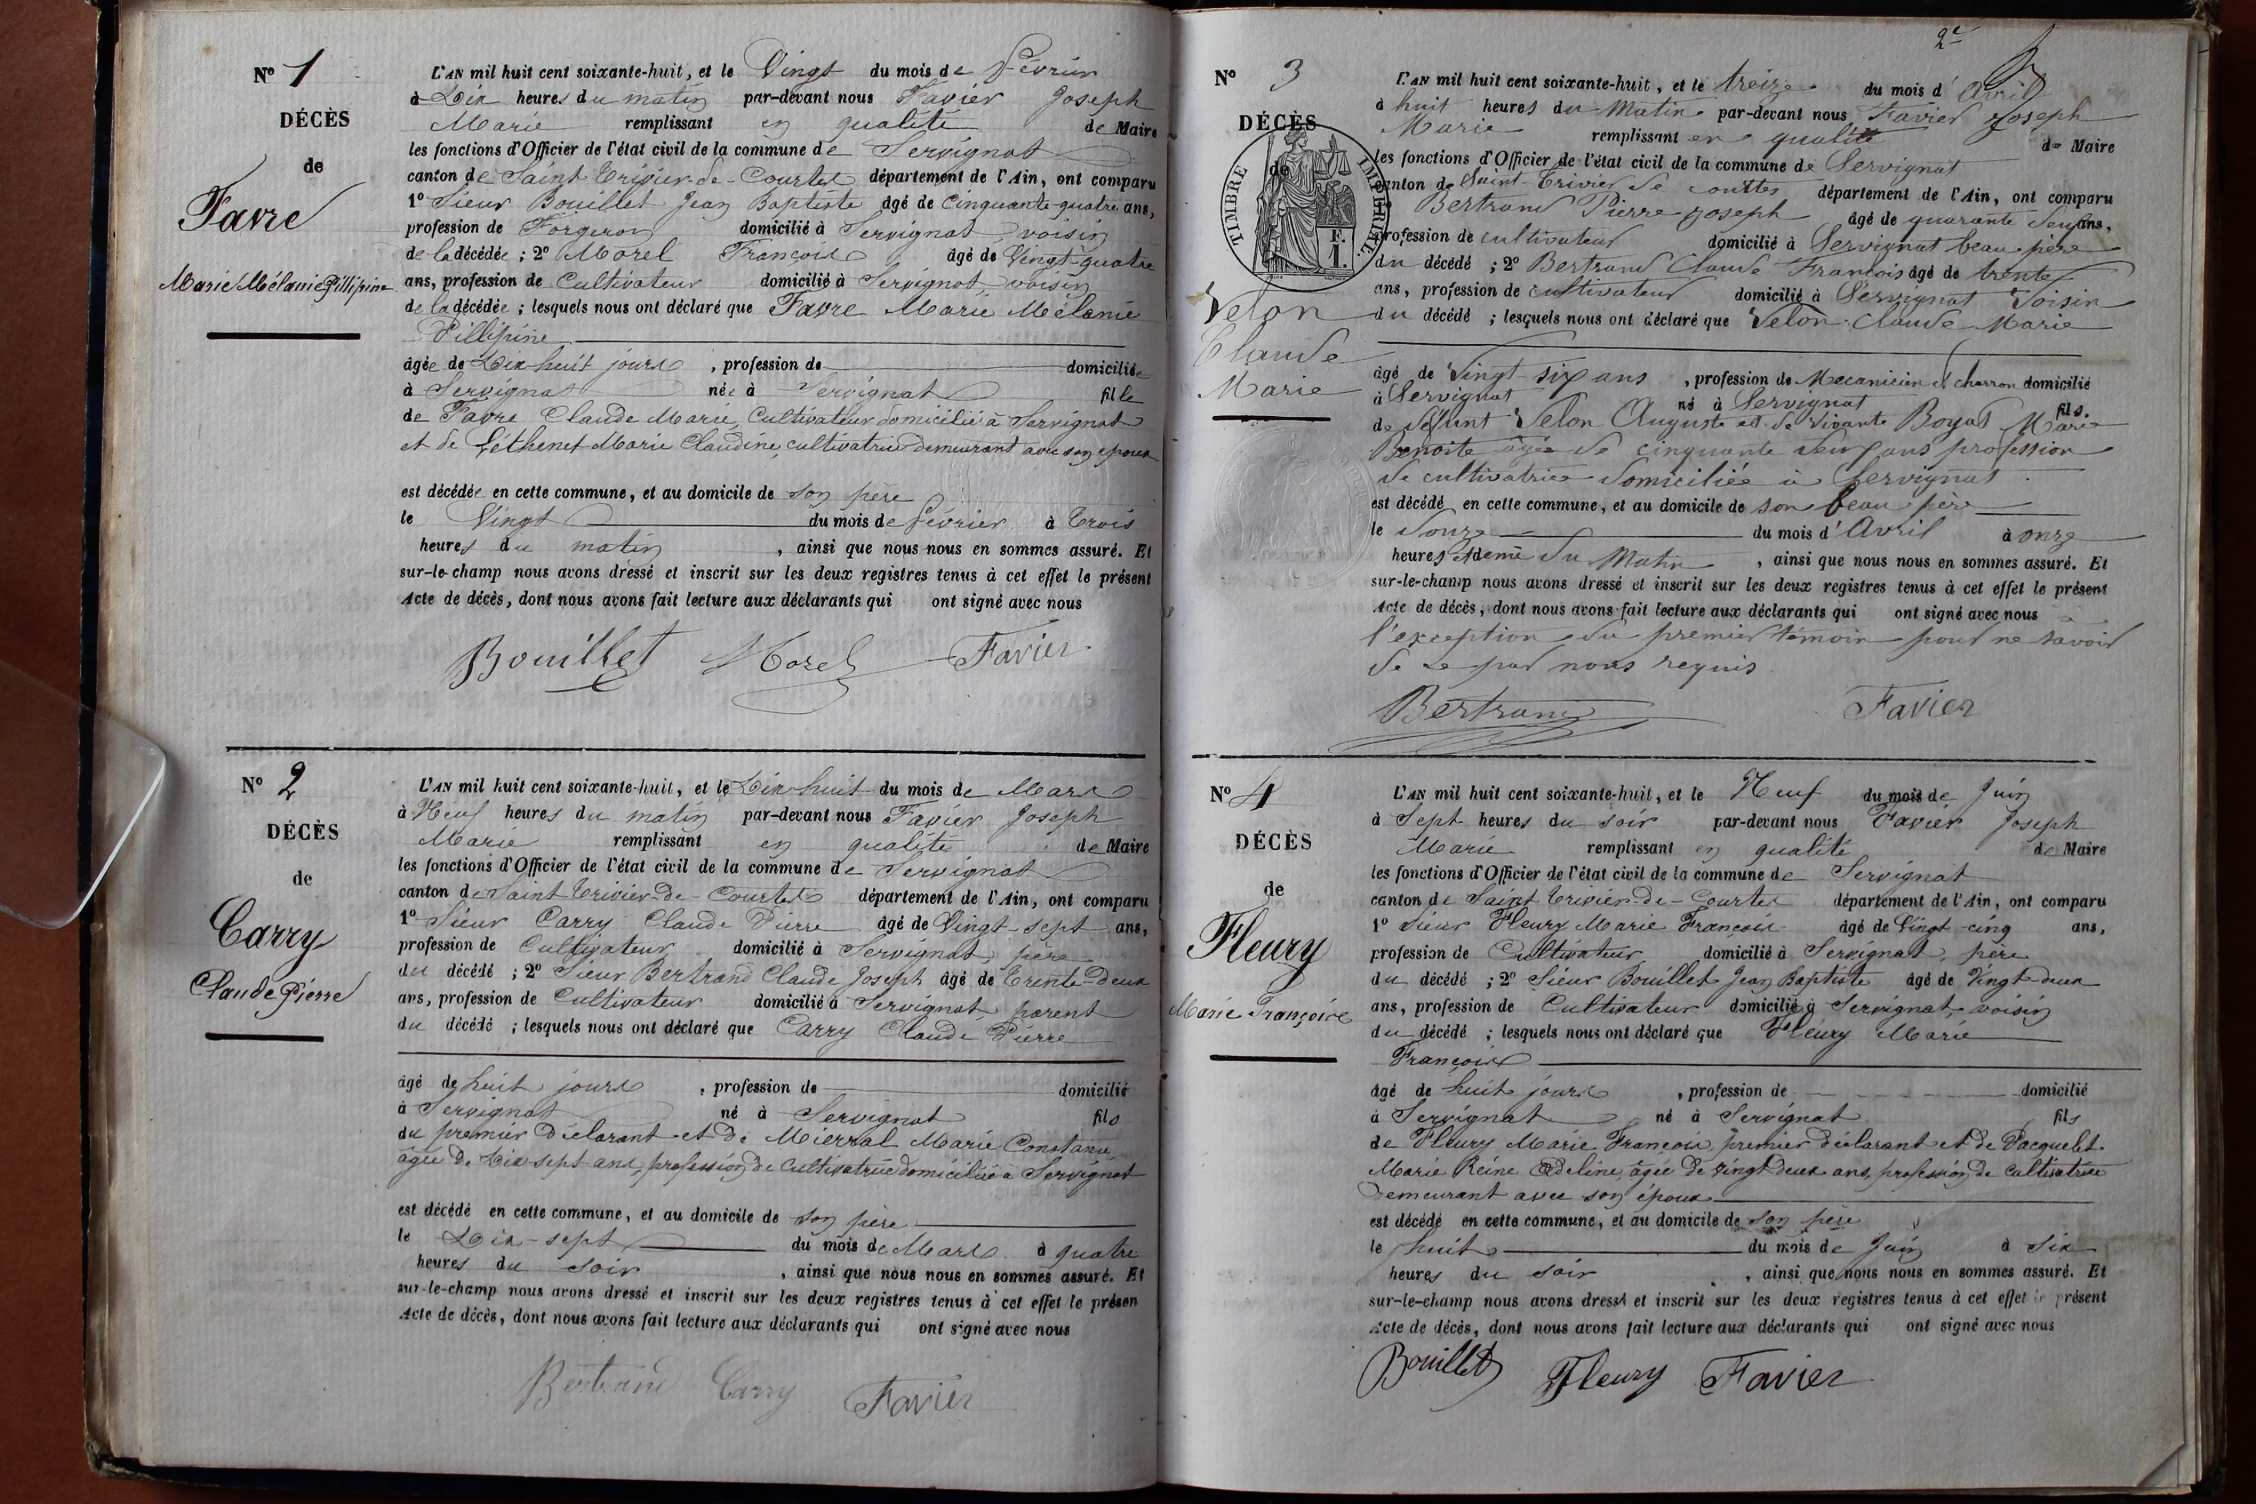 N° 1
DÉCÈS
de
Favre
Marie Mélanie Pillipine
L'AN mil huit cent soixante-huit, et le Vingt du mois de Février
à Dix heures du matin par-devant nous Favier Joseph
Marie remplissant en qualité de Maire
les fonctions d'Officier de l'état civil de la commune de Servignat
canton de Saint Trivier-de-Courtes département de l'Ain, ont comparu
1° Sieur Bouillet Jean Baptiste âgé de Cinquante-quatre ans,
profession de Forgeron domicilié à Servignat, voisin
de la décédée ; 2° Morel François âgé de Vingt-quatre
ans, profession de Cultivateur domicilié à Servignat, voisin
de la décédée ; lesquels nous ont déclaré que Favre Marie Mélanie
Pillipine
âgée de Dix huit jours , profession de domiciliée
à Servignat née à Servignat fille
de Favre Claude Marie, Cultivateur domicilié à Servignat
et de Léthenet Marie Claudine, cultivatrice demeurant avec son époux
est décédée en cette commune, et au domicile de son père
le Vingt du mois de Février à Trois
heures du matin , ainsi que nous nous en sommes assuré. Et
sur-le-champ nous avons dressé et inscrit sur les deux registres tenus à cet effet le présent
Acte de décès, dont nous avons fait lecture aux déclarants qui ont signé avec nous
Bouillet Morel Favier
N° 2
DÉCÈS
de
Carry
Claude Pierre
L'AN mil huit cent soixante-huit, et le Dix-huit du mois de Mars
à Neuf heures du matin par-devant nous Favier Joseph
Marie remplissant en qualité de Maire
les fonctions d'Officier de l'état civil de la commune de Servignat
canton de Saint Trivier-de-Courtes département de l'Ain, ont comparu
1° Sieur Carry Claude Pierre âgé de Vingt-sept ans,
profession de Cultivateur domicilié à Servignat, père
du décédé ; 2° Sieur Bertrand Claude Joseph âgé de Trente-deux
ans, profession de Cultivateur domicilié à Servignat, parent
du décédé ; lesquels nous ont déclaré que Carry Claude Pierre
âgé de huit jours , profession de domicilié
à Servignat né à Servignat fils
du premier Déclarant et de Mierral Marie Constance
âgée de Dix sept ans, profession de Cultivatrice domiciliée à Servignat
est décédé en cette commune, et au domicile de son père
le Dix-sept du mois de Mars à quatre
heures du soir , ainsi que nous nous en sommes assuré. Et
sur-le-champ nous avons dressé et inscrit sur les deux registres tenus à cet effet le présen
Acte de décès, dont nous avons fait lecture aux déclarants qui ont signé avec nous
Bertrand Carry Favier
2e
N° 3
DÉCÈS
de
TIMBRE IMPÉRIAL
F.
1.
Velon
Claude
Marie
L'AN mil huit cent soixante-huit, et le treize du mois d' Avril
à huit heures du Matin par-devant nous Favier Joseph
Marie remplissant en qualité de Maire
les fonctions d'Officier de l'état civil de la commune de Servignat
canton de Saint-Trivier de courtes département de l'Ain, ont comparu
Bertrand Pierre joseph âgé de quarante deux ans,
profession de cultivateur domicilié à Servignat beau-père
du décédé ; 2° Bertrand Claude François âgé de trente
ans, profession de cultivateur domicilié à Servignat Voisin
du décédé ; lesquels nous ont déclaré que Velon Claude Marie
âgé de Vingt six ans , profession de Mecanicien et charron domicilié
à Servignat né à Servignat fils.
de défunt Velon Auguste et de vivante Boyat Marie
Benoite âgée de cinquante deux ans profession
de cultivatrice domiciliée à Servignat.
est décédé en cette commune, et au domicile de son beau père
le Douze du mois d' Avril à onze
heures et demi du Matin , ainsi que nous nous en sommes assuré. Et
sur-le-champ nous avons dressé et inscrit sur les deux registres tenus à cet effet le présent
Acte de décès, dont nous avons fait lecture aux déclarants qui ont signé avec nous à
l'exception du premier témoin pour ne savoir
de ce par nous requis.
Bertrand Favier
N° 4
DÉCÈS
de
Fleury
Marie François
L'AN mil huit cent soixante-huit, et le Neuf du mois de Juin
à Sept heures du soir par-devant nous Favier Joseph
Marie remplissant en qualité de Maire
les fonctions d'Officier de l'état civil de la commune de Servignat
canton de Saint Trivier-de-Courtes département de l'Ain, ont comparu
1° Sieur Fleury Marie François âgé de Vingt-cinq ans,
profession de Cultivateur domicilié à Servignat, père
du décédé ; 2° Sieur Bouillet Jean Baptiste âgé de Vingt-deux
ans, profession de Cultivateur domicilié à Servignat, voisin
du décédé ; lesquels nous ont déclaré que Fleury Marie
François
âgé de huit jours , profession de domicilié
à Servignat né à Servignat fils
de Fleury Marie François, premier déclarant et de Pacquelet
Marie Reine Adeline, âgée de vingt deux ans, profession de Cultivatrice
Demeurant avec son époux
est décédé en cette commune, et au domicile de son père
le huit du mois de Juin à six
heures du soir , ainsi que nous nous en sommes assuré. Et
sur-le-champ nous avons dressé et inscrit sur les deux registres tenus à cet effet le présent
Acte de décès, dont nous avons fait lecture aux déclarants qui ont signé avec nous
Bouillet Fleury Favier